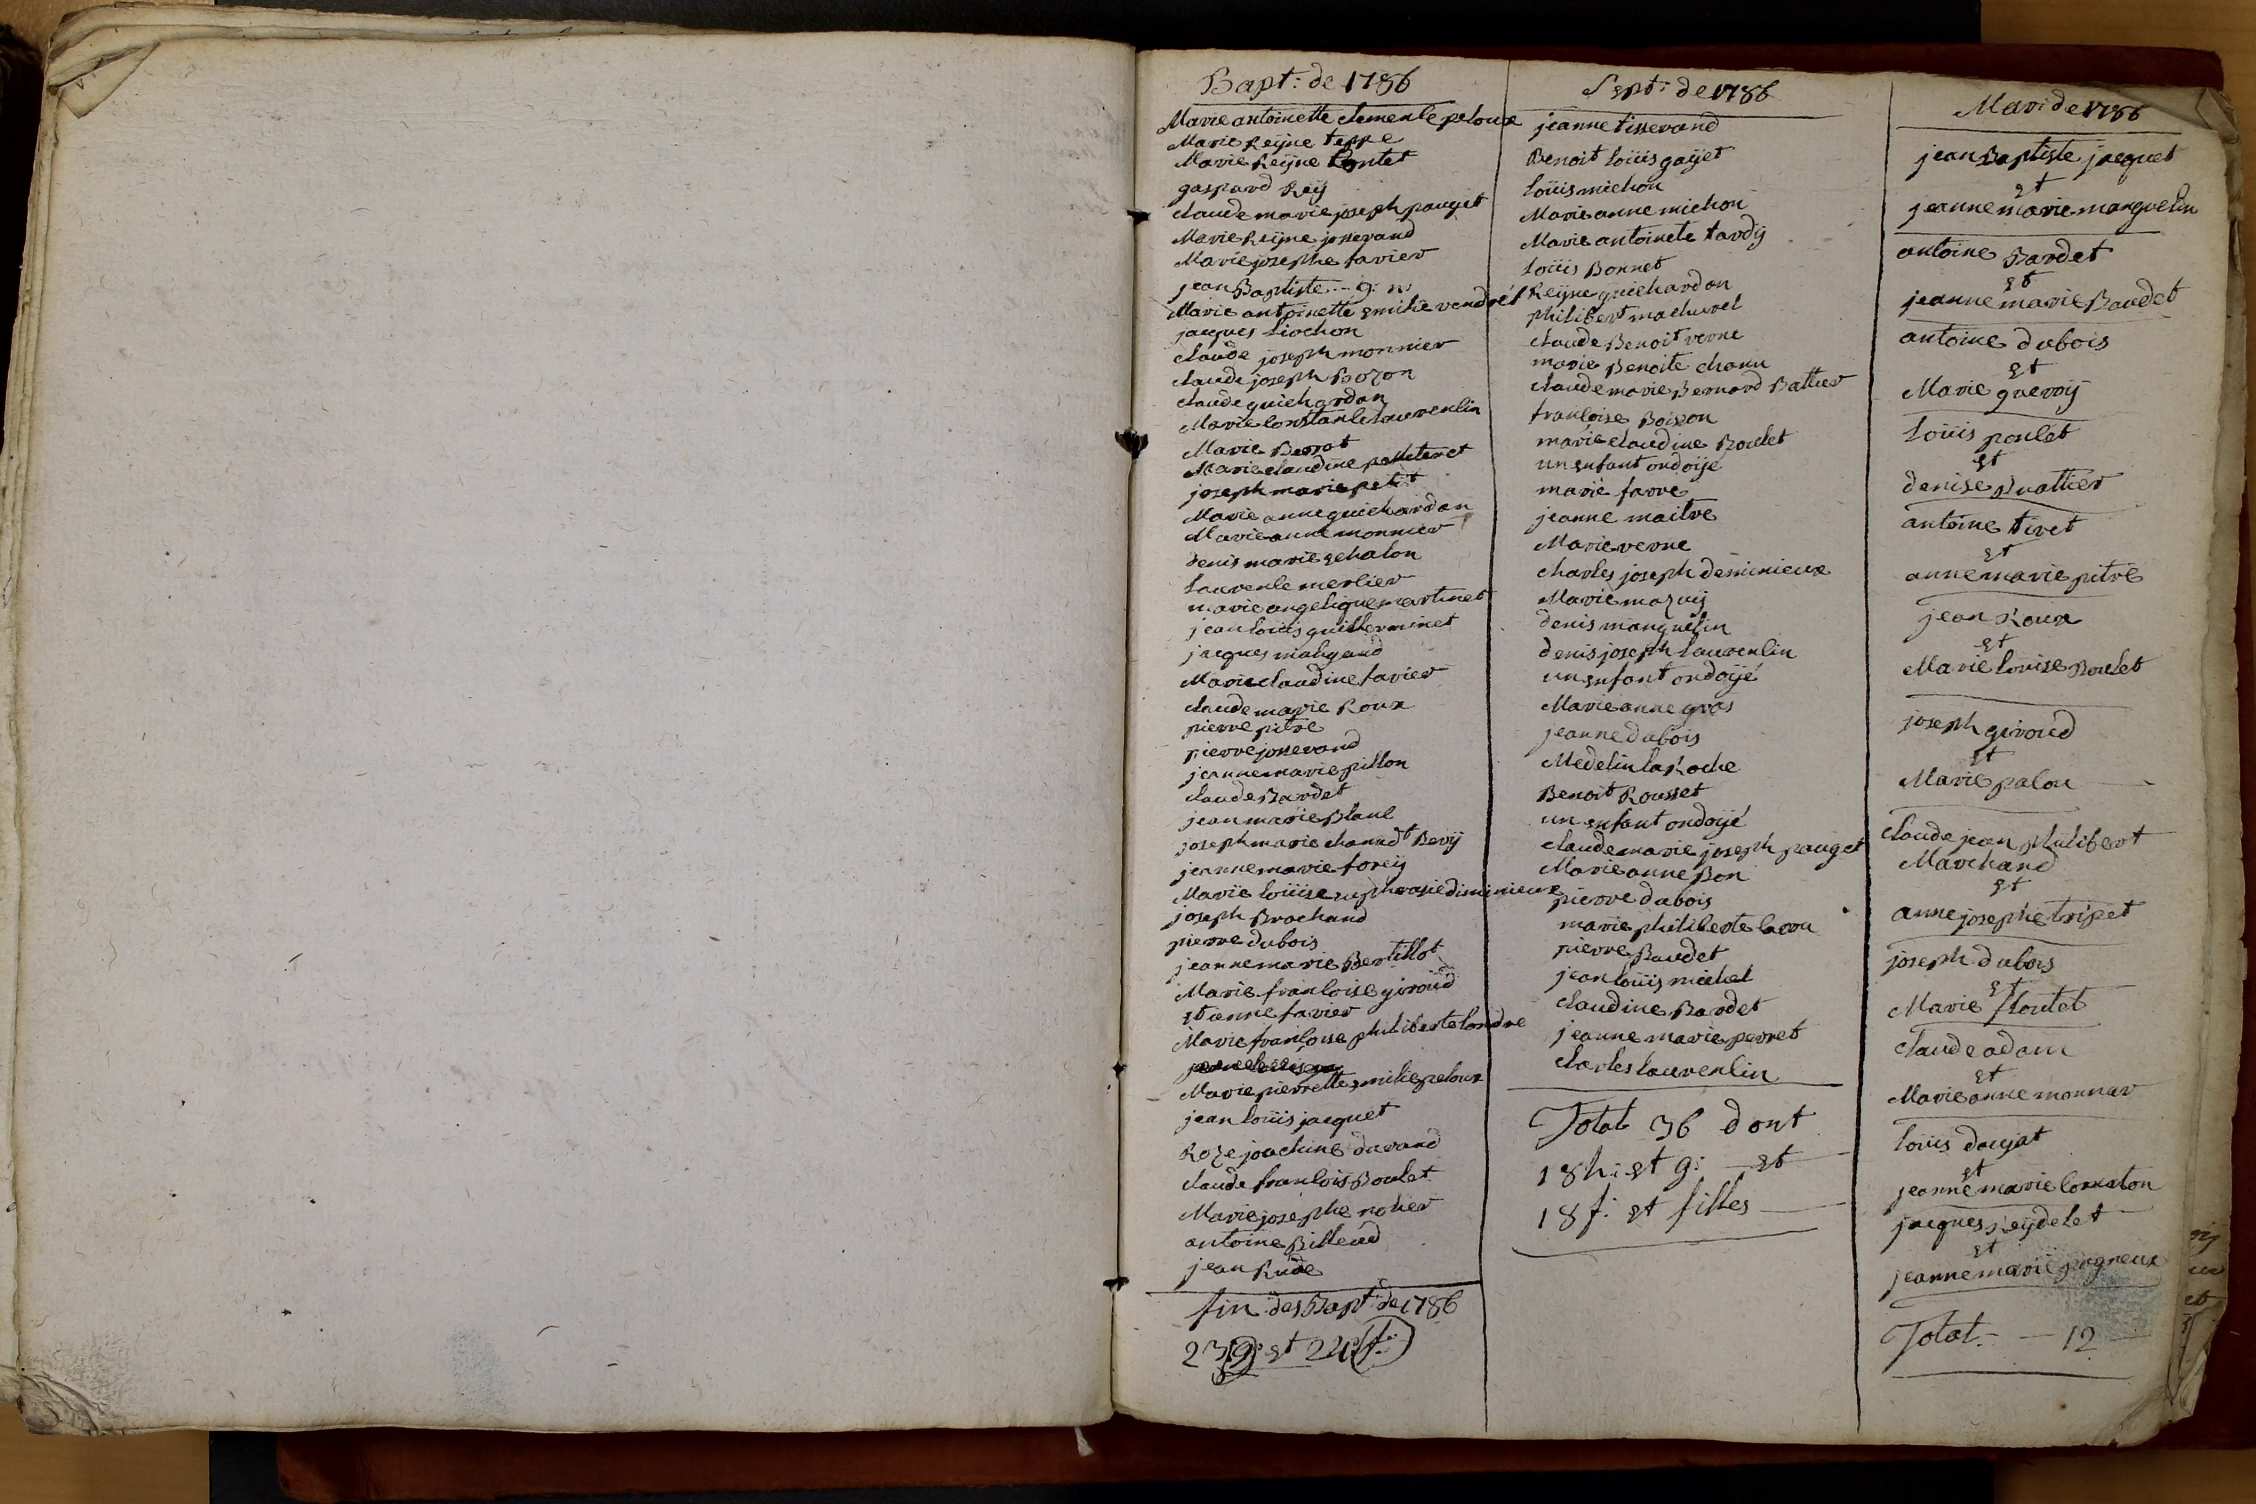 Bapt: de 1786
Marie antoinette clemence peloux
Marie Reÿne teppe
Marie Reÿne Contet
gaspard Reÿ
claude marie joseph pauget
Marie Reÿne josserand
Marie josephe favier
jean Baptiste --- g: n:
Marie antoinette emilie vendrel
jacques Liochon
claude joseph monnier
claude joseph Bozon
claude guichardan
Marie constance laurencin
Marie Berrot
Marie claudine pelleteret
joseph marie petit
Marie anne guichardan
Marie anne monnier
denis marie echalon
laurence merlier
marie angelique martinet
jean loüis guillerminet
jacques maligand
Marie claudine favier
claude marie Roux
pierre pitre
pierre josserand
jeanne marie pillon
claude Bardet
jean marie Blanc
joseph marie channd† Bevÿ
jeanne marie foreÿ
Marie loüise euphrasie diminieux
joseph Brochand
pierre dubois
jeanne marie Bertillot
Marie françoise giroüd
etienne favier
Marie françoise philiberte londre
Marie pierrette emilie peloux
jean loüis jacquet
Roze joachine durand
claude francois Boulet
Marie josephe rohier
antoine Billoud
jean Rude
fin des Bapt: de 1786
23 g: et 24 f:
Sept: de 1786
jeanne tisserand
Benoit loüis gaÿet
loüis michon
Marie anne michon
Marie antoinete tardÿ
loüis Bonnet
Reÿne guichardon
philibert machurel
claude Benoit verne
marie Benoite chanu
claude marie Bernard Battier
francoise Boison
marie claudine Boulet
un enfant ondoÿé
marie farre
jeanne maitre
Marie verne
charles joseph deminieux
Marie mazuÿ
denis manguelin
denis joseph laurencin
un enfant ondoÿé
Marie anne gras
jeanne dubois
Medelin la Roche
Benoit Rousset
un enfant ondoÿé
claude marie joseph pauget
Marie anne Bon
pierre dubois
marie philiberte lacou
pierre Baudet
jean loüis michel
claudine Bardet
jeanne marie perret
charles laurencin
Total 36 dont
18 h: et g: et
18 f: et filles
Mar: de 1786
jean Baptiste jacquet
et
jeanne marie manguelin
antoine Bardet
et
jeanne marie Baudet
antoine dubois
et
Marie guerroÿ
loüis poulet
et
denise Buattier
antoine tiret
et
anne marie pitre
jean Roux
et
Marie louise Boulet
joseph giroud
et
Marie palou
claude jean philibert
Marchand
et
anne josephe tripet
joseph dubois
et
Marie floutet
claude adam
et
Marie anne monnar
loüis daujat
et
jeanne marie convaton
jacques Reÿdelet
et
jeanne marie pogneux
Total - - 12